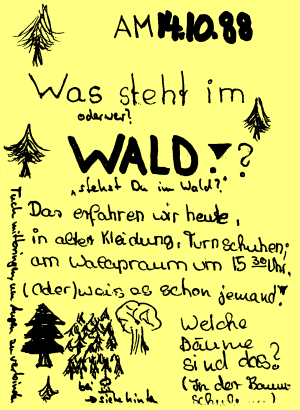 AM 14.10.88
Was steht im
oder wer?
WALD!?
„stehst Du im Wald?“
Das erfahren wir heute,
in alter Kleidung, Turnschuhen,
am Waldpraum um 15 30 Uhr.
(Oder) weis es schon jemand?
Welche
Bäume
sind das?
(In der Baum-
schule....)
bei
→ siehe hinten
Tuch mitbringen, um Augen zu verbinden